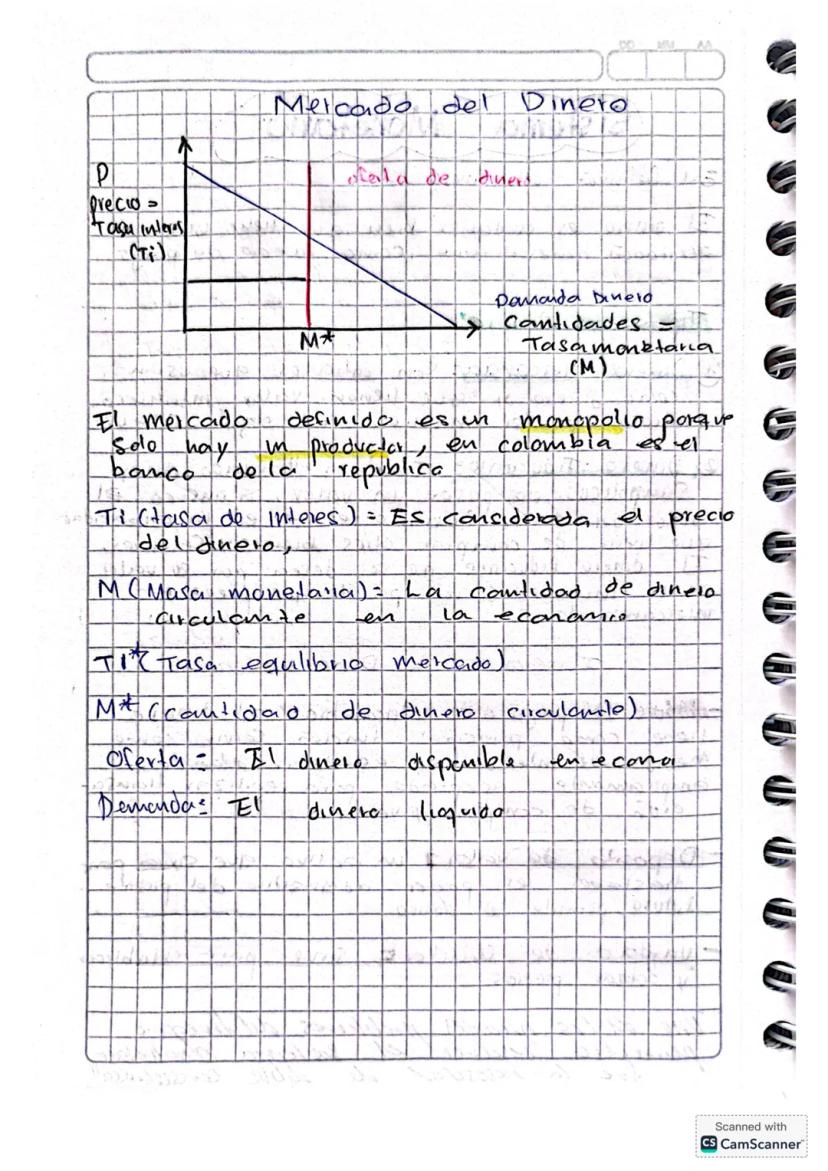 Mercado del Dinero
P
precio =
Tasa interes
(Ti)
oferta de diner
Demanda Dinero
Cantidades =
Tasa monetaria
(M)
M*
El mercado definido es un monopolio porque
solo hay un productor, en colombia es el
banco de la republica
Ti (tasa de interes) = Es considerada el precio
del dinero,
M (Masa monetaria) = La cantidad de dinero
circulante en la economia
TI* (Tasa equlibrio mercado)
M* (cantidad de dinero circulante)
Oferta = El dinero disponible en econa
Demanda = El dinero liquido
Scanned with
CS CamScanner